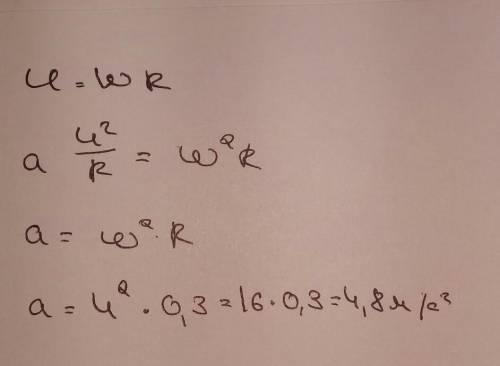 u = ωR
a u²/R = ω²R
a = ω²·R
a = 4²·0,3=16·0,3=4,8м/с²